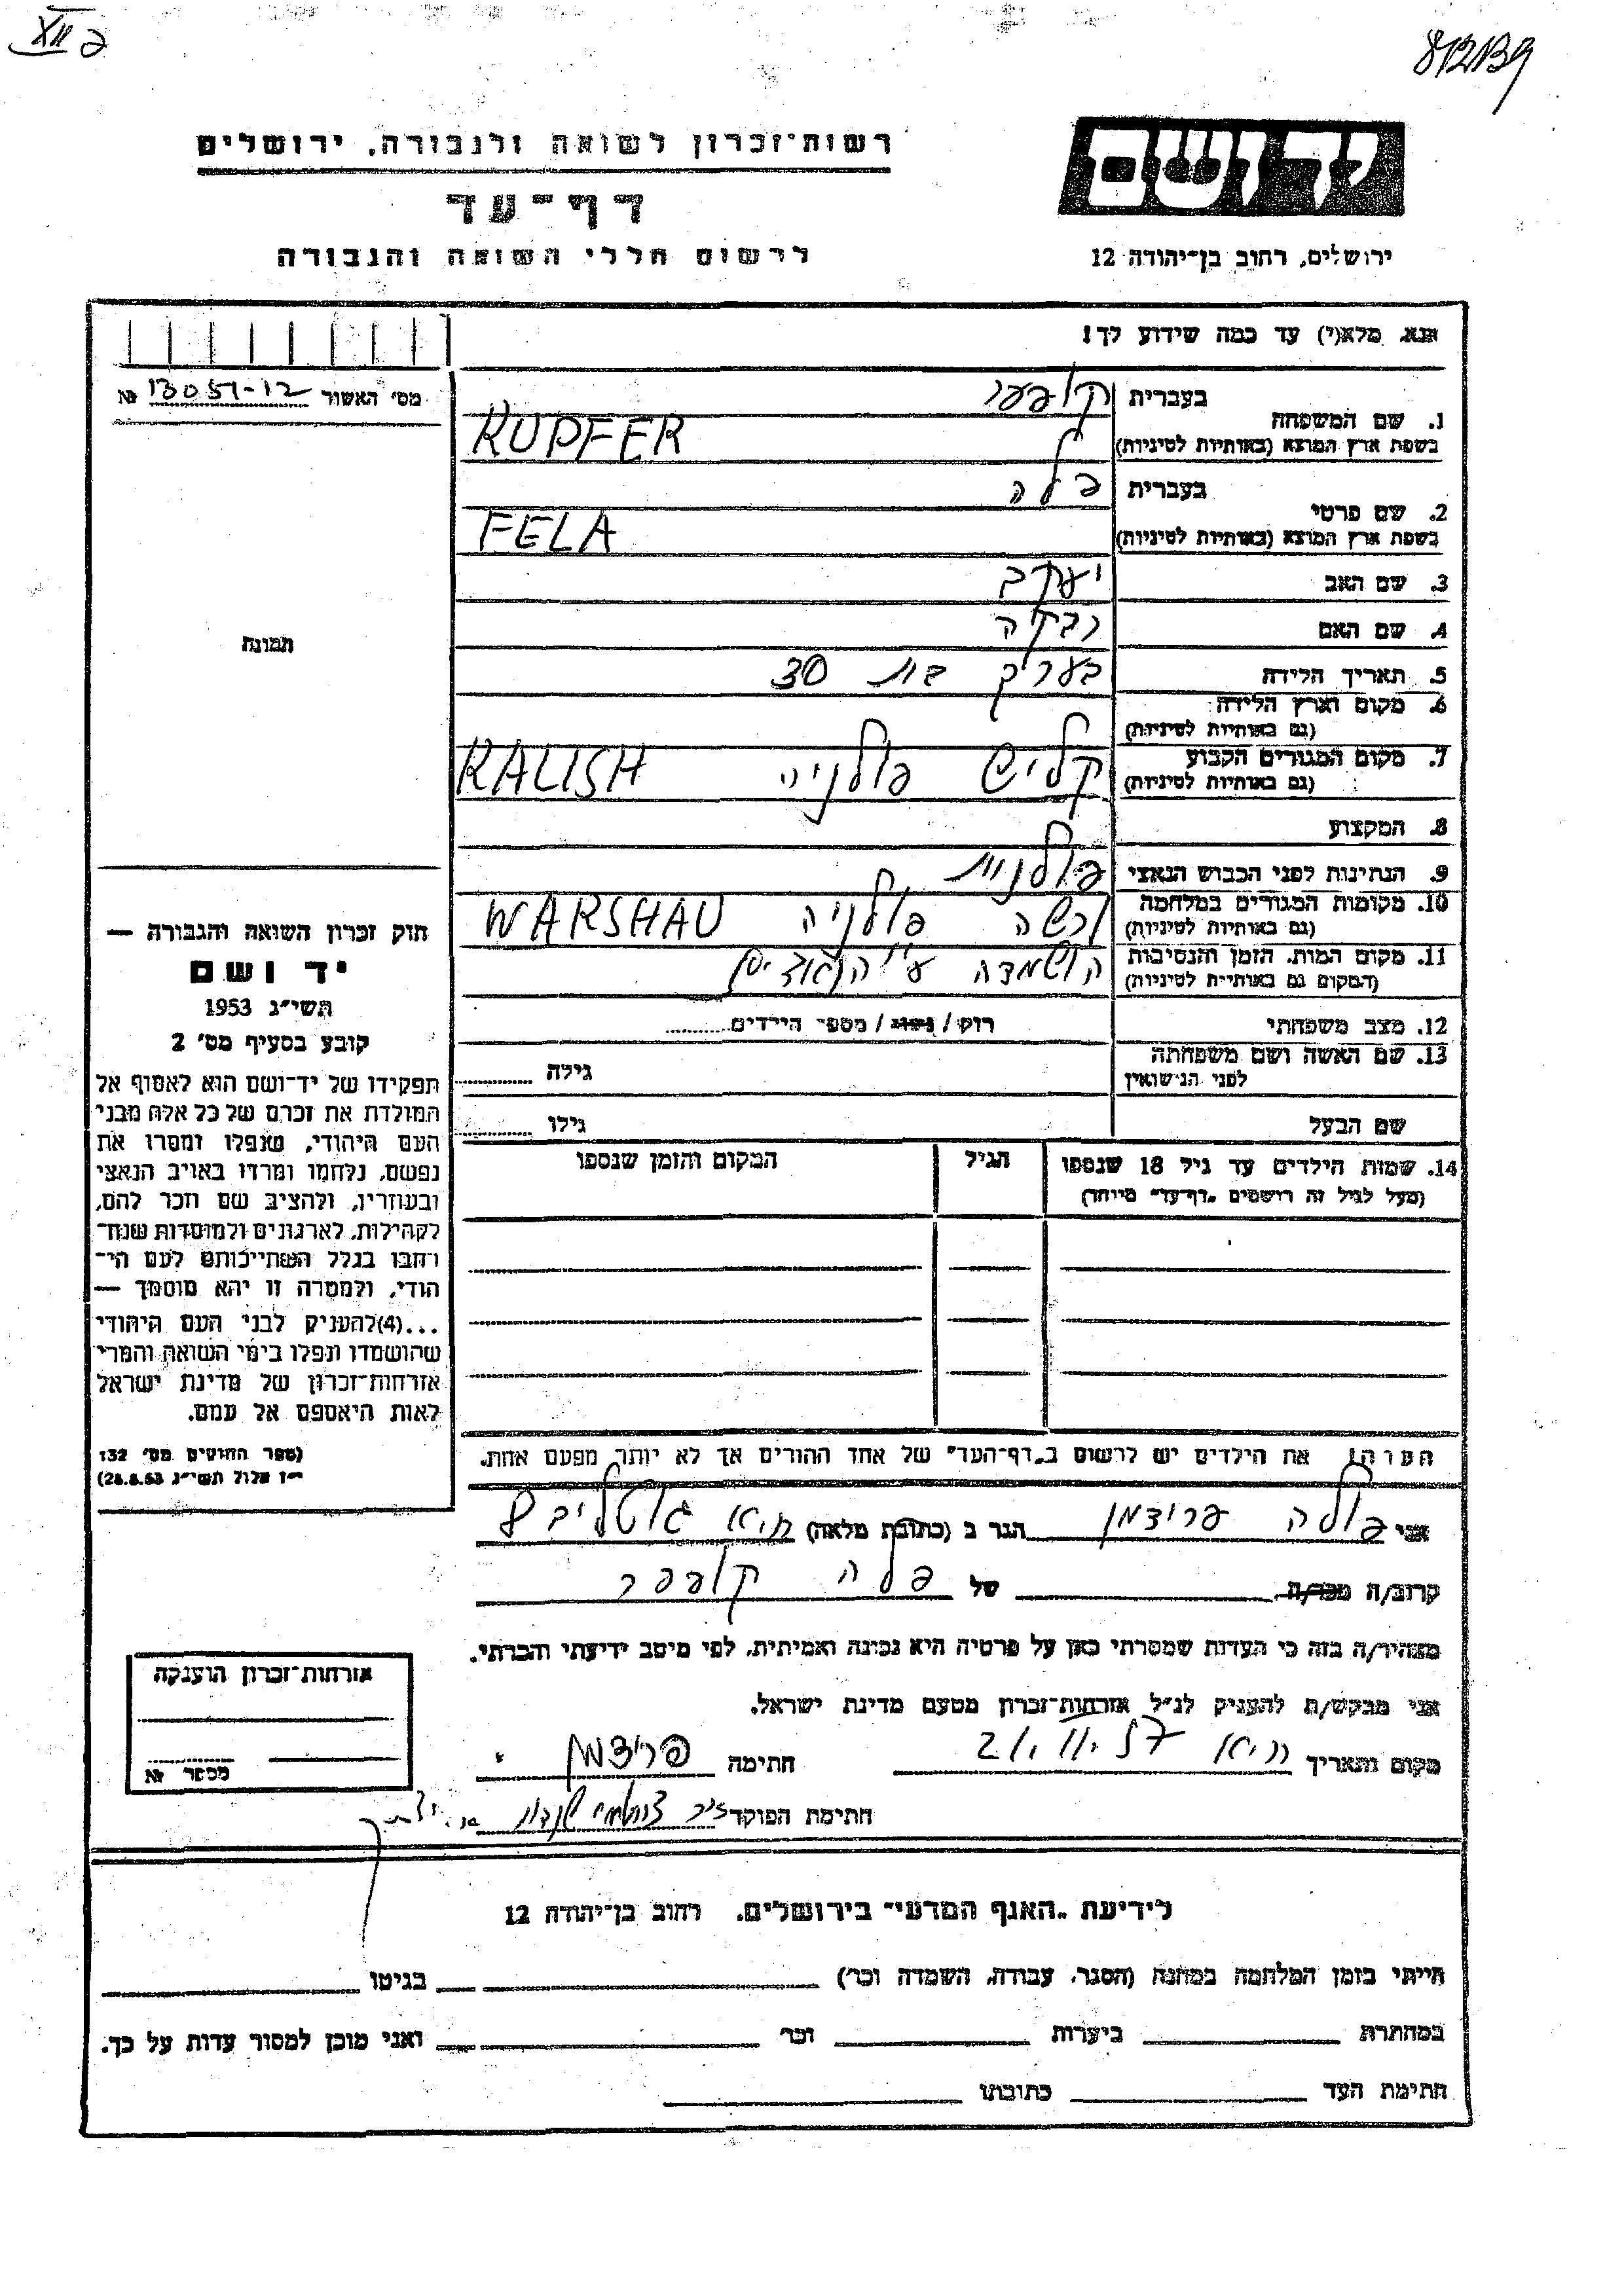 XII פ
812B9
יד ושם
רשות־זכרון לשואה ולגבורה, ירושלים
דף־עד
לרשום חללי השואה והגבורה
ירושלים, רחוב בן־יהודה 12
אנא, מלא(י) עד כמה שידוע לך!
מס׳ האשור 13051-12 №
1. שם המשפחה
בעברית קופפר
בשפת ארץ המוצא (באותיות לטיניות) KUPFER
2. שם פרטי
בעברית פלה
בשפת ארץ המוצא (באותיות לטיניות) FELA
3. שם האב יעקב
4. שם האם רבקה
5. תאריך הלידה בערך בת 30
6. מקום וארץ הלידה
(גם באותיות לטיניות)
7. מקום המגורים הקבוע
(גם באותיות לטיניות) קליש פולניה KALISH
8. המקצוע
9. הנתינות לפני הכבוש הנאצי פולנית
10. מקומות המגורים במלחמה
(גם באותיות לטיניות) ורשה פולניה WARSHAU
11. מקום המות, הזמן והנסיבות
(המקום גם באותיות לטיניות) הושמדה ע״י הנאצים
12. מצב משפחתי רווק / נשוי / מספר הילדים
13. שם האשה ושם משפחתה
לפני הנישואין גילה
שם הבעל גילו
14. שמות הילדים עד גיל 18 שנספו הגיל המקום והזמן שנספו
(מעל לגיל זה רושמים „דף־עד״ מיוחד)
תמונה
חוק זכרון השואה והגבורה —
יד ושם
תשי״ג 1953
קובע בסעיף מס׳ 2
תפקידו של יד־ושם הוא לאסוף אל
המולדת את זכרם של כל אלה מבני
העם היהודי, שנפלו ומסרו את
נפשם, נלחמו ומרדו באויב הנאצי
ובעוזריו, ולהציב שם וזכר להם,
לקהילות, לארגונים ולמוסדות שנח־
רבו בגלל השתייכותם לעם הי־
הודי, ולמטרה זו יהא מוסמך —
...(4)להעניק לבני העם היהודי
שהושמדו ונפלו בימי השואה והמרי
אזרחות־זכרון של מדינת ישראל
לאות היאספם אל עמם.
(ספר החוקים מס׳ 132
י״ז אלול תשי״ג 28.8.53)
הערה! את הילדים יש לרשום ב„דף־העד״ של אחד ההורים אך לא יותר מפעם אחת.
אני פולה פרידמן הגר ב (כתובת מלאה) ת״א גוטליב 8
קרוב/ה מכר/ה של פלה קופפר
מצהיר/ה בזה כי העדות שמסרתי כאן על פרטיה היא נכונה ואמיתית, לפי מיטב ידיעתי והכרתי.
אני מבקש/ת להעניק לנ״ל אזרחות־זכרון מטעם מדינת ישראל.
מקום ותאריך ת״א חתימה פרידמן
חתימת הפוקד
אזרחות־זכרון הוענקה
מספר №
לידיעת „האגף המדעי״ בירושלים, רחוב בן־יהודה 12
הייתי בזמן המלחמה במחנה (הסגר, עבודה, השמדה וכו׳) בגיטו
במחתרת ביערות וכו׳ ואני מוכן למסור עדות על כך.
חתימת העד כתובתו